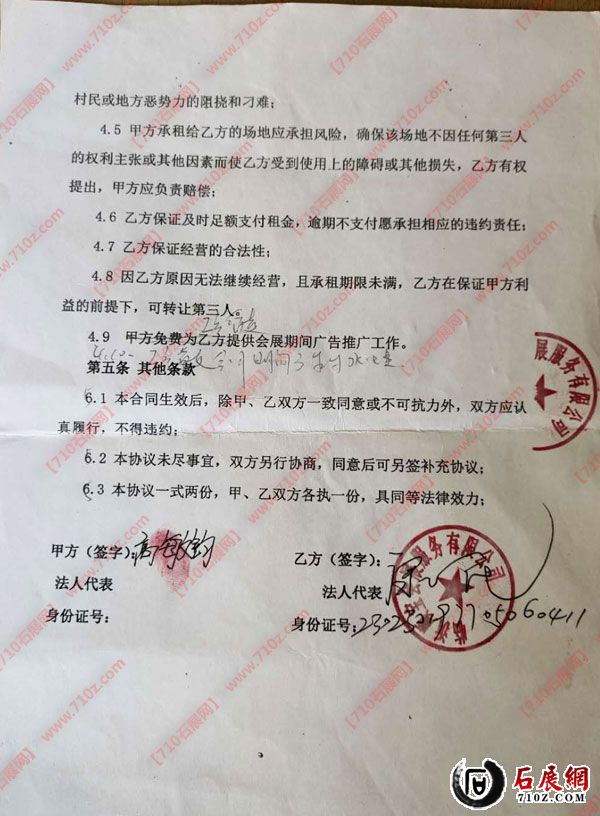 村民或地方恶势力的阻挠和刁难；
4.5 甲方承租给乙方的场地应承担风险，确保该场地不因任何第三人
的权利主张或其他因素而使乙方受到使用上的障碍或其他损失，乙方有权
提出，甲方应负责赔偿；
4.6 乙方保证及时足额支付租金，逾期不支付愿承担相应的违约责任；
4.7 乙方保证经营的合法性；
4.8 因乙方原因无法继续经营，且承租期限未满，乙方在保证甲方利
益的前提下，可转让第三人。
4.9 甲方免费为乙方提供会展期间广告推广工作。
第五条 其他条款
5.1 本合同生效后，除甲、乙双方一致同意或不可抗力外，双方应认
真履行，不得违约；
5.2 本协议未尽事宜，双方另行协商，同意后可另签补充协议；
5.3 本协议一式两份，甲、乙双方各执一份，具同等法律效力；
甲方（签字）：
乙方（签字）：
法人代表
法人代表
身份证号：
身份证号：
展服务有限公司
服务有限公司
【710石展网】
www.710z.com
石展網
710Z.COM